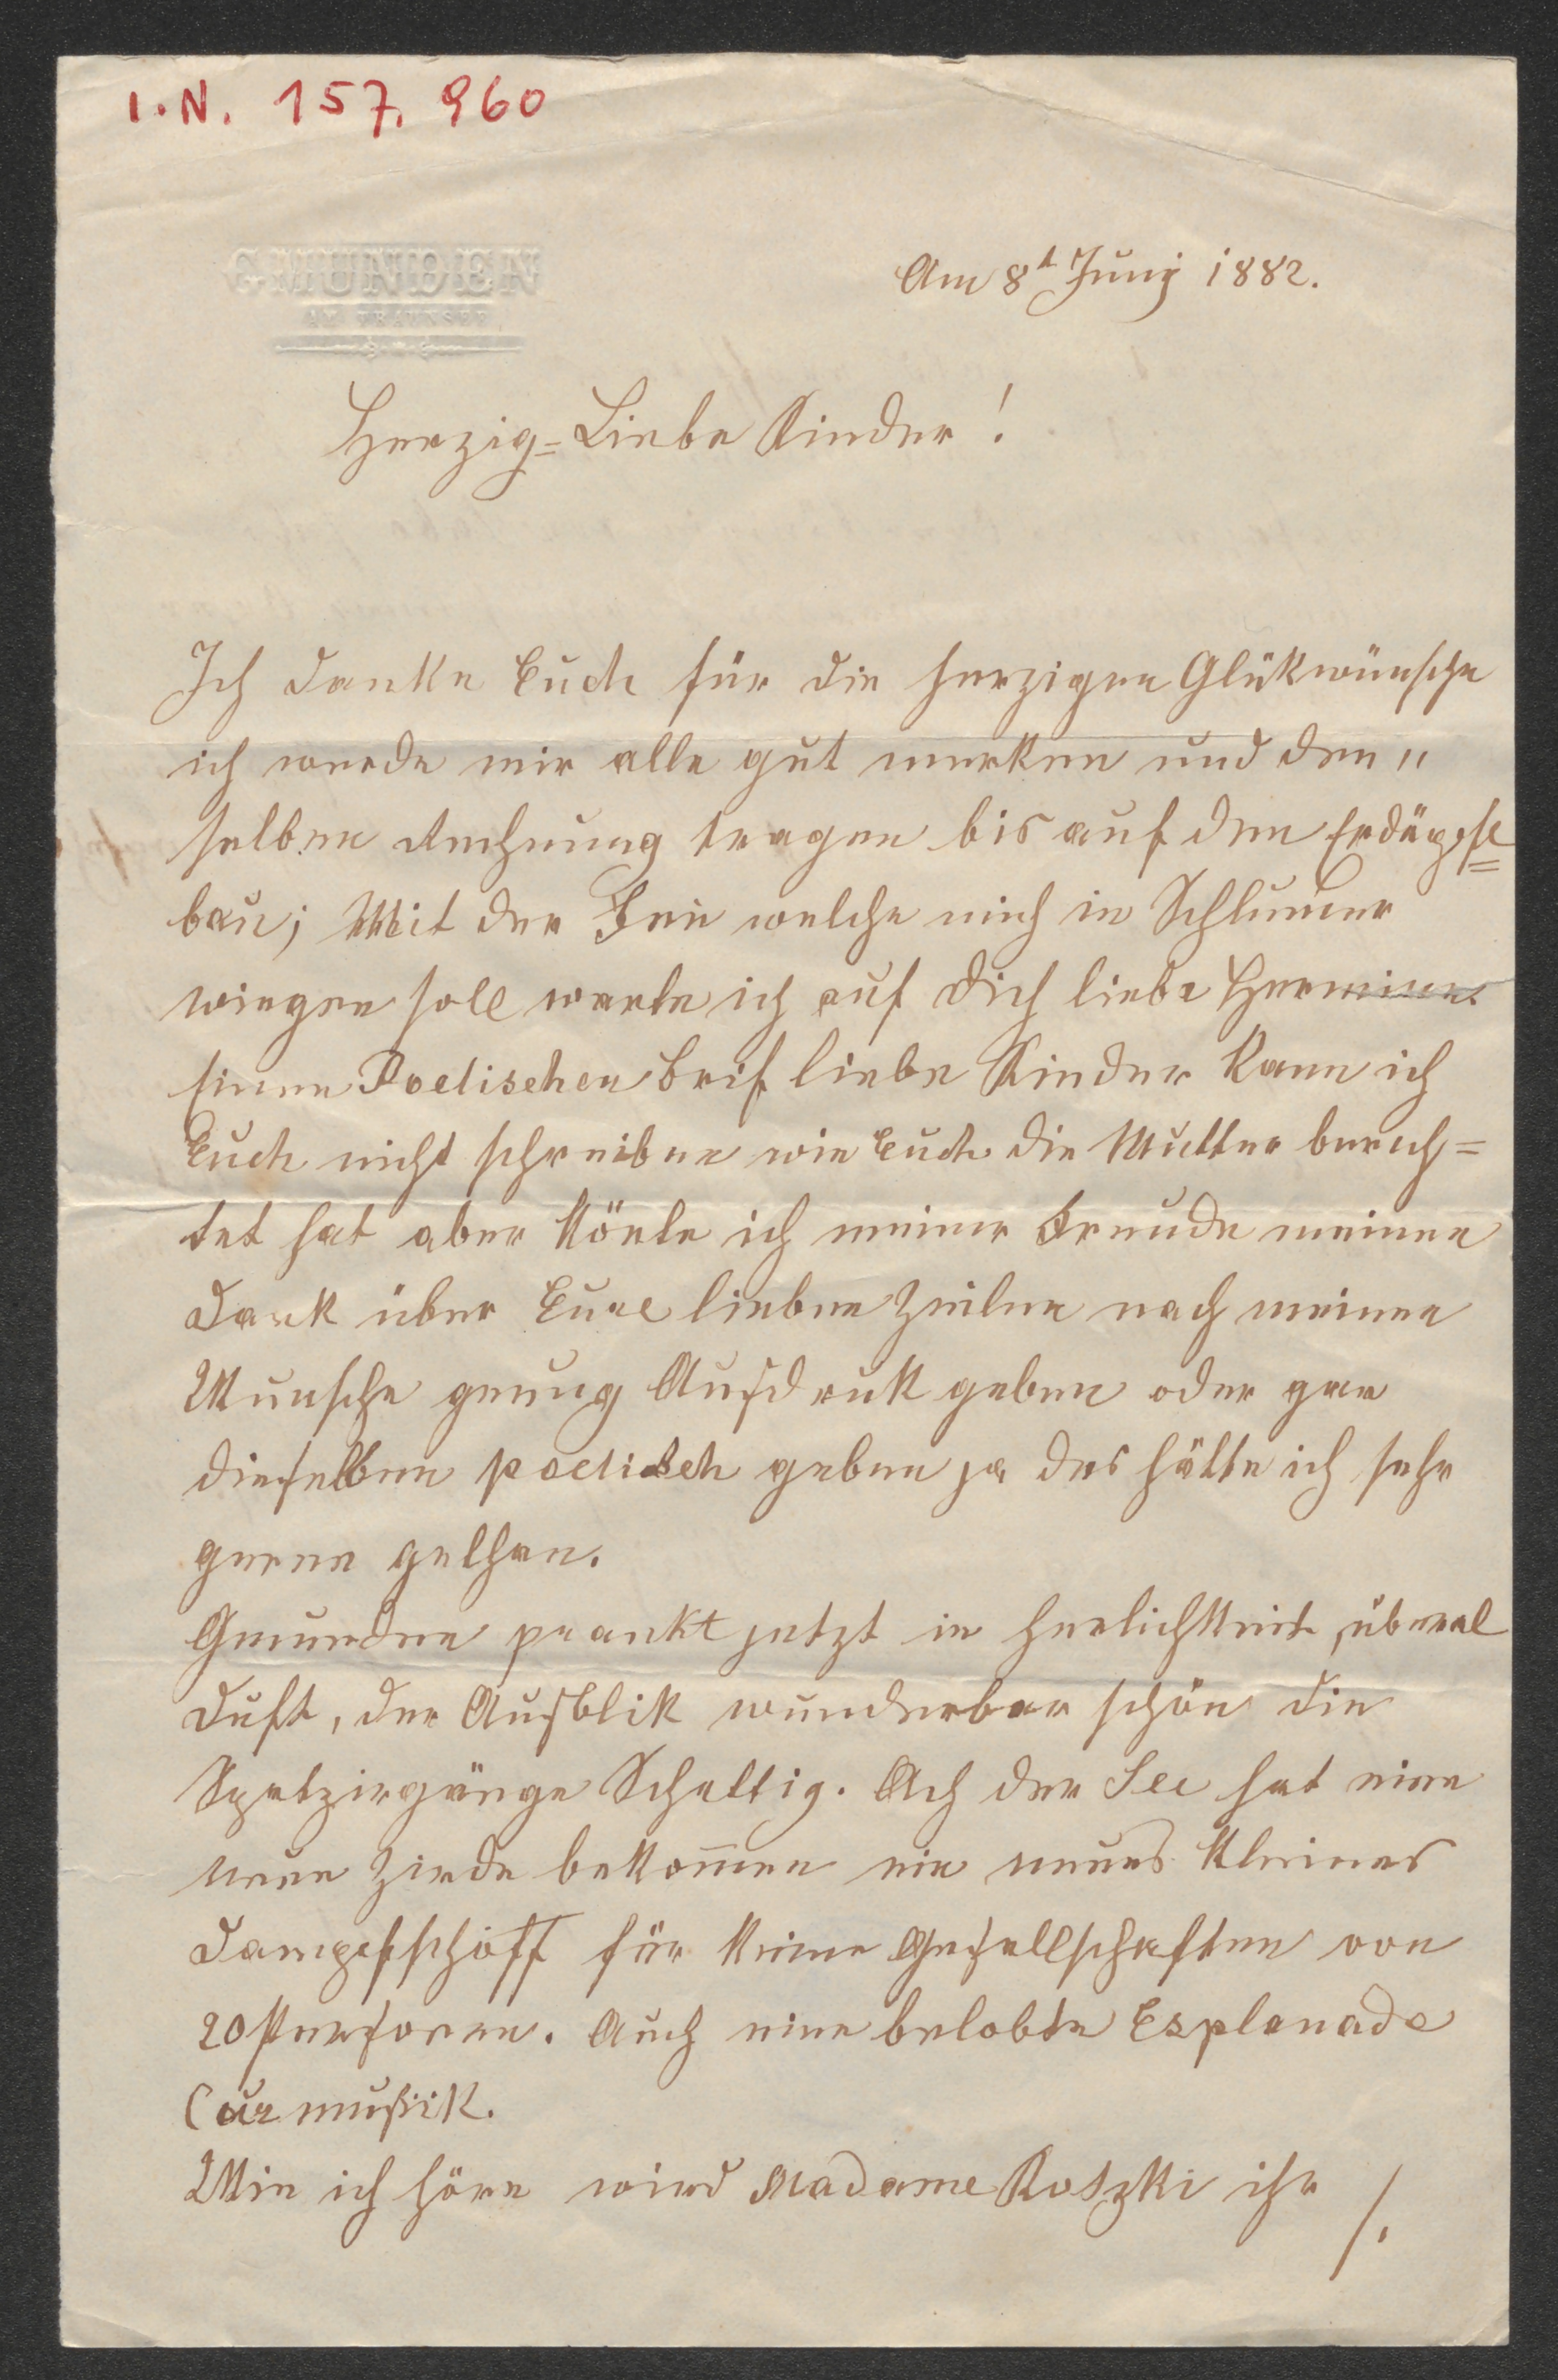 I.N. 157.960
GMUNDEN
AM TRAUNSEE
Am 8t Junj 1882.
Herzig=Liebe Kinder!
Ich danke Euch für die herzigen Glükwünsche
ich werde mir alle gut merken und den„
selben Rechnung tragen bis auf den Erdäpfl=
bau; Mit der Feii welche mich in Schlumer
wiegen soll warte ich auf dich liebe Hermine.
Einen Poetischen Brif liebe Kinder kann ich
Euch nicht schreiben wie Euch die Mutter berich=
tet hat aber könte ich meiner Freude meinen
Dank über Eure lieben Zeilen nach meinen
Wunsche genug Ausdruk geben oder gar
dieselben poetisch geben ja das hätte ich sehr
gerne gethan.
Gmunden prankt jetzt in Herlichkeit, überal
Duft, der Ausblik wunderbar schön die
Spatzirgänge Schattig. Ach der See hat eine
neue Zirde bekom̅en ein neues Kleines
Dampfschiff für kleine Gesellschaften von
20 Personen. Auch eine belobte Esplanade
Curmusik.
Wie ich höre wird Madame Roszki ihr
/.